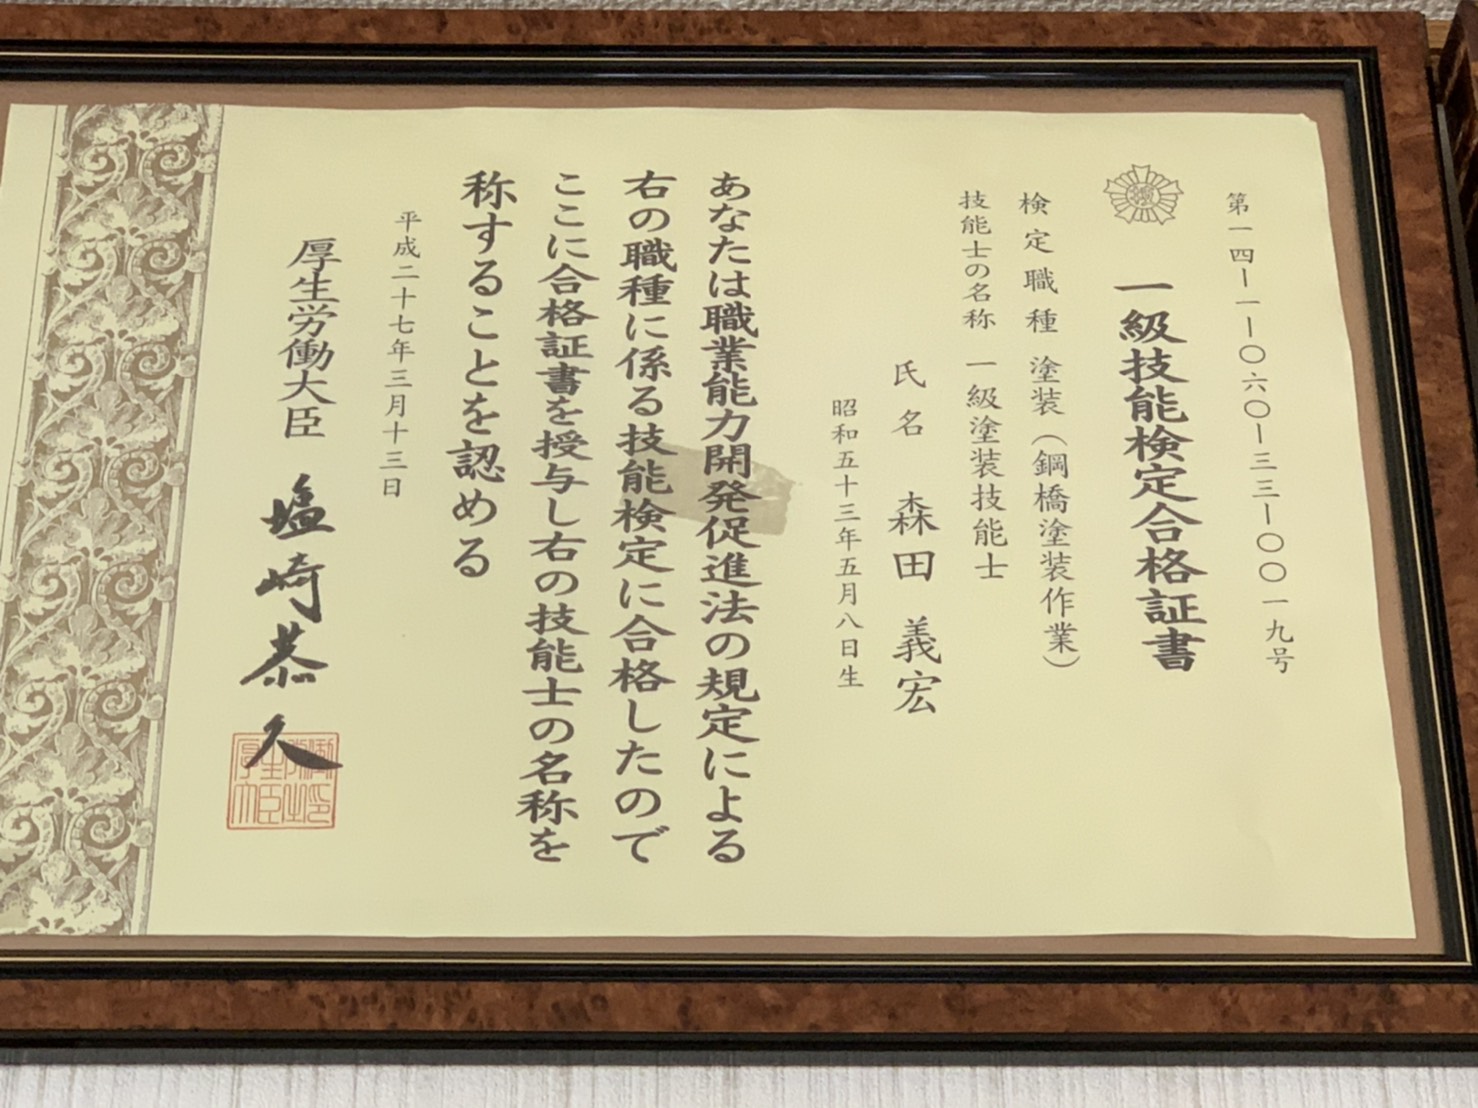 第一四ー一ー〇六〇ー三三ー〇〇一九号
一級技能検定合格証書
検定職種 塗装(鋼橋塗装作業)
技能士の名称 一級塗装技能士
氏名 森田 義宏
昭和五十三年五月八日生
あなたは職業能力開発促進法の規定による
右の職種に係る技能検定に合格したので
ここに合格証書を授与し右の技能士の名称を
称することを認める
平成二十七年三月十三日
厚生労働大臣 塩崎恭久